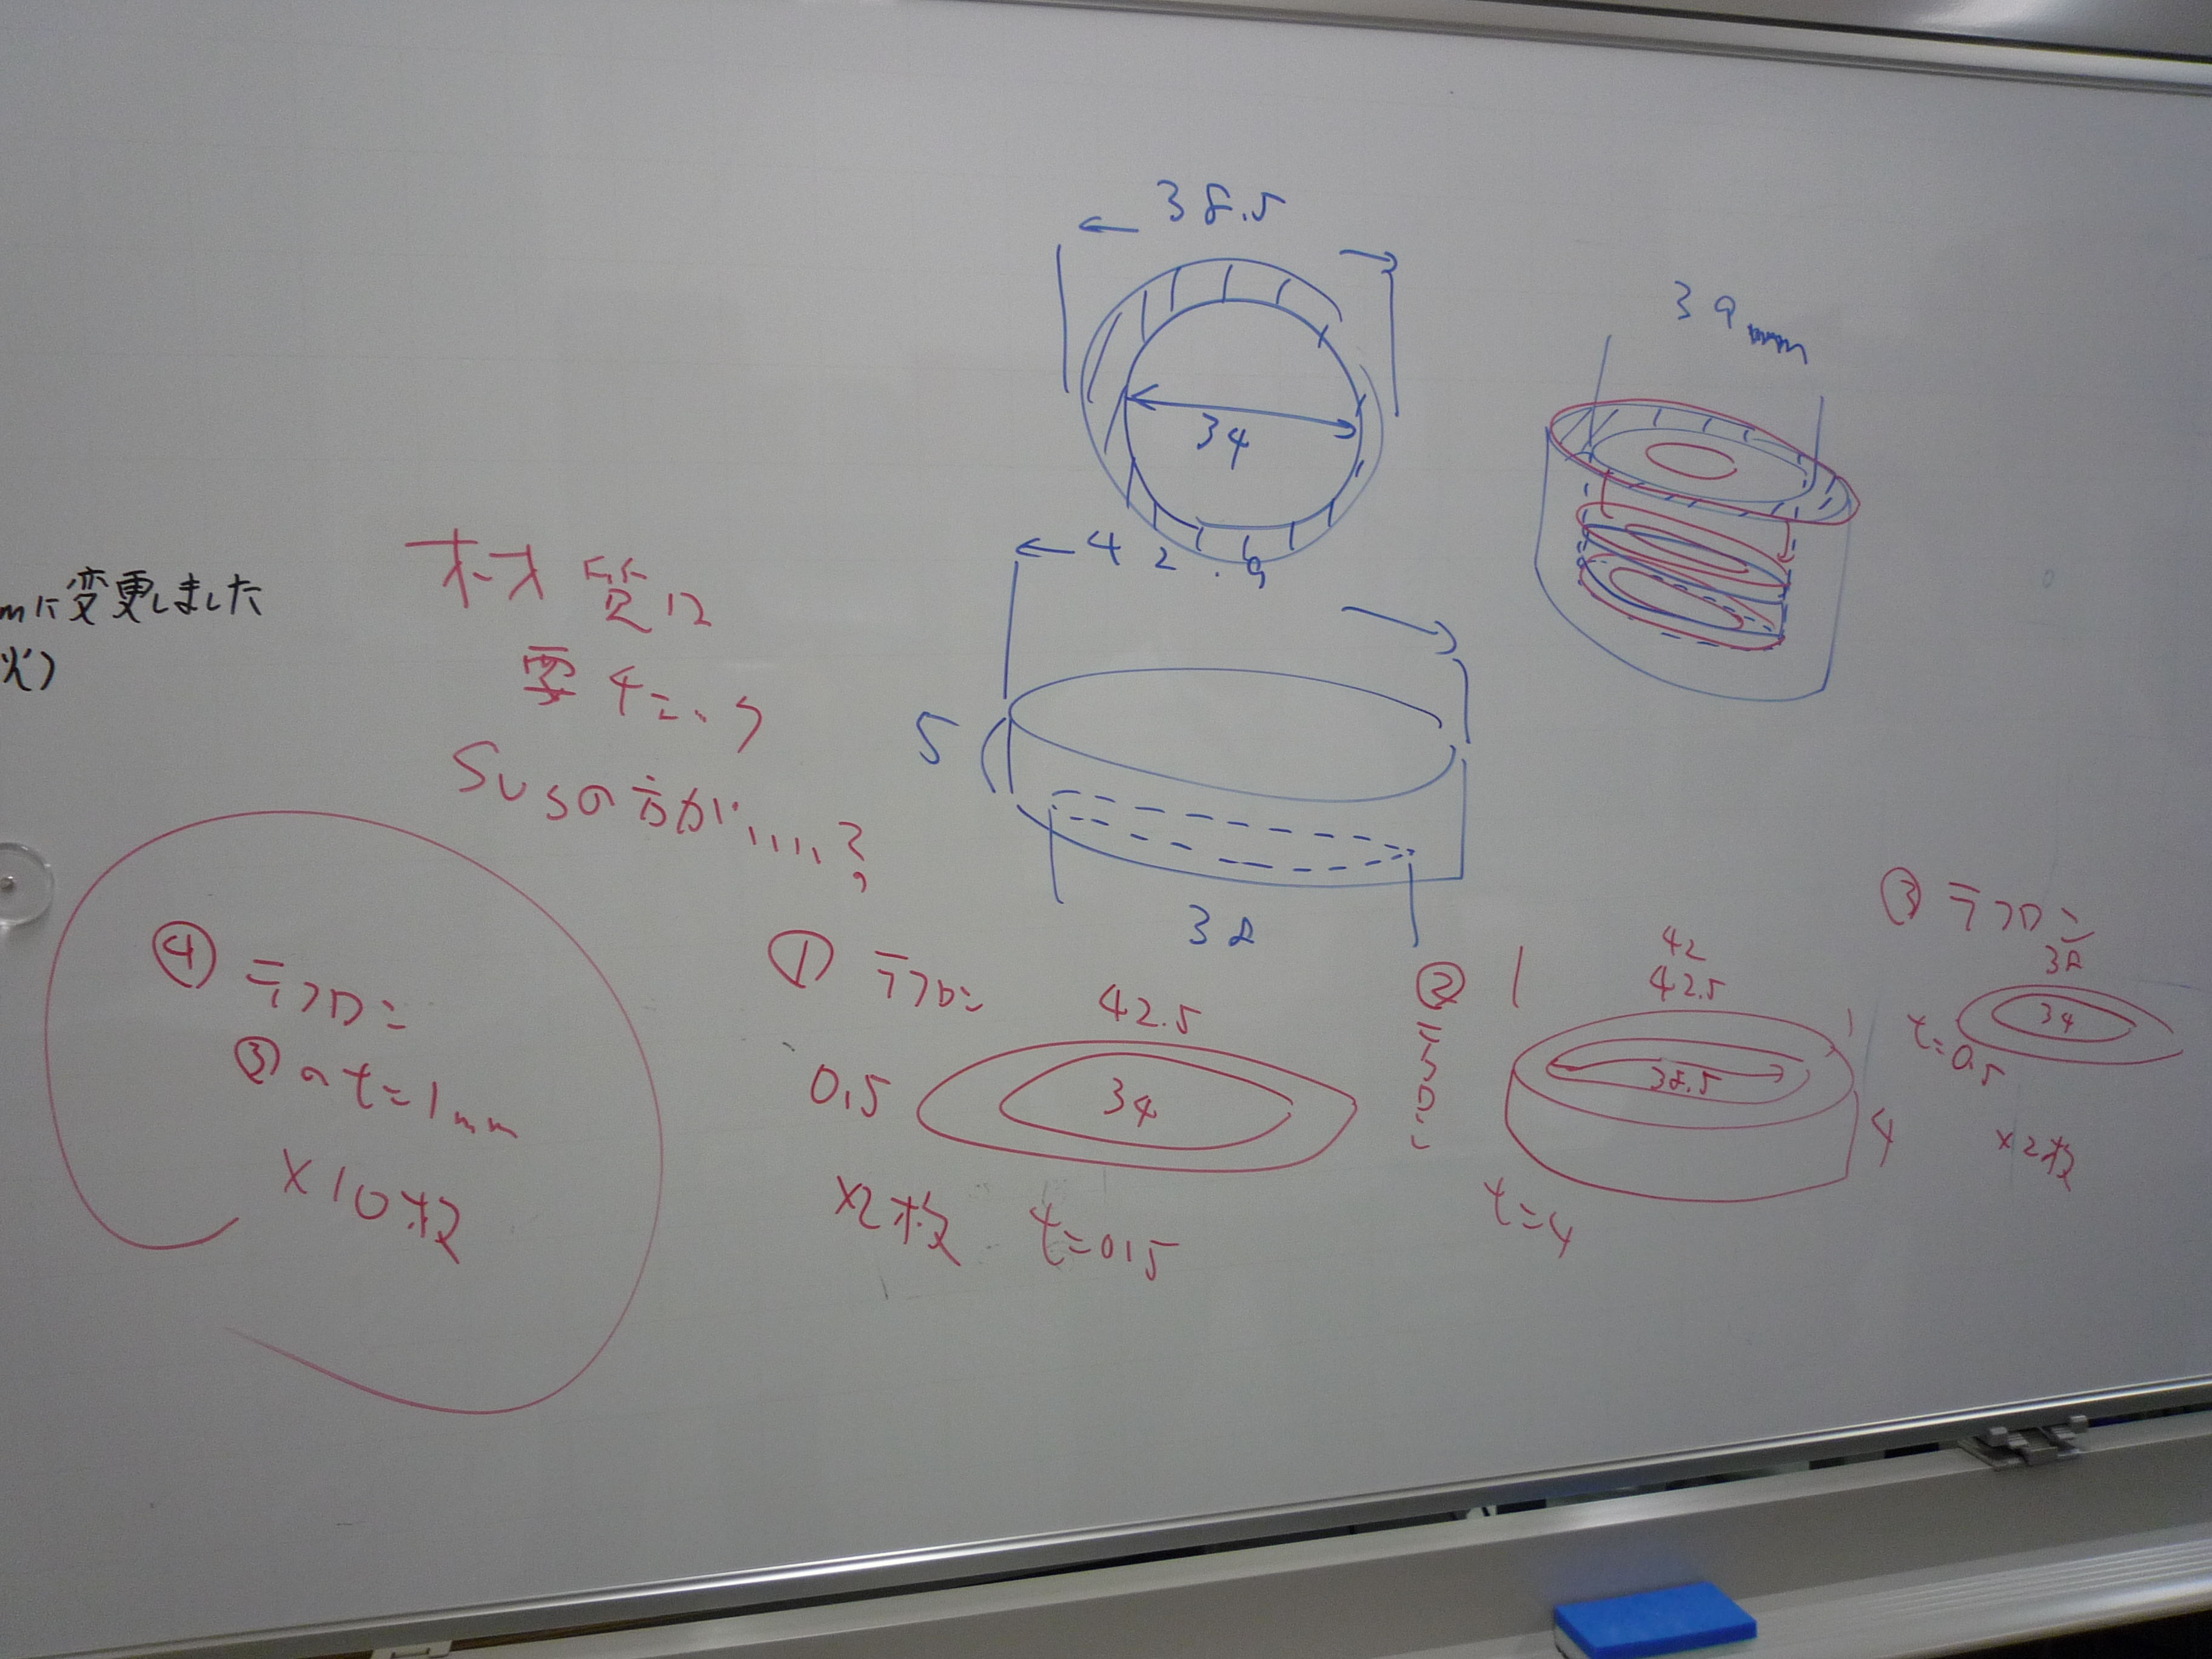 38.5
34
39mm
42.9
5
38
mに変更しました
火)
材質は
要チェック
SUSの方が....?
④ テフロン
③の t=1mm
×10枚
① テフロン
42.5
0.5
34
×2枚 t=0.5
②
42
42.5
38.5
4
t=4
③ テフロン
38
34
t=0.5
×2枚